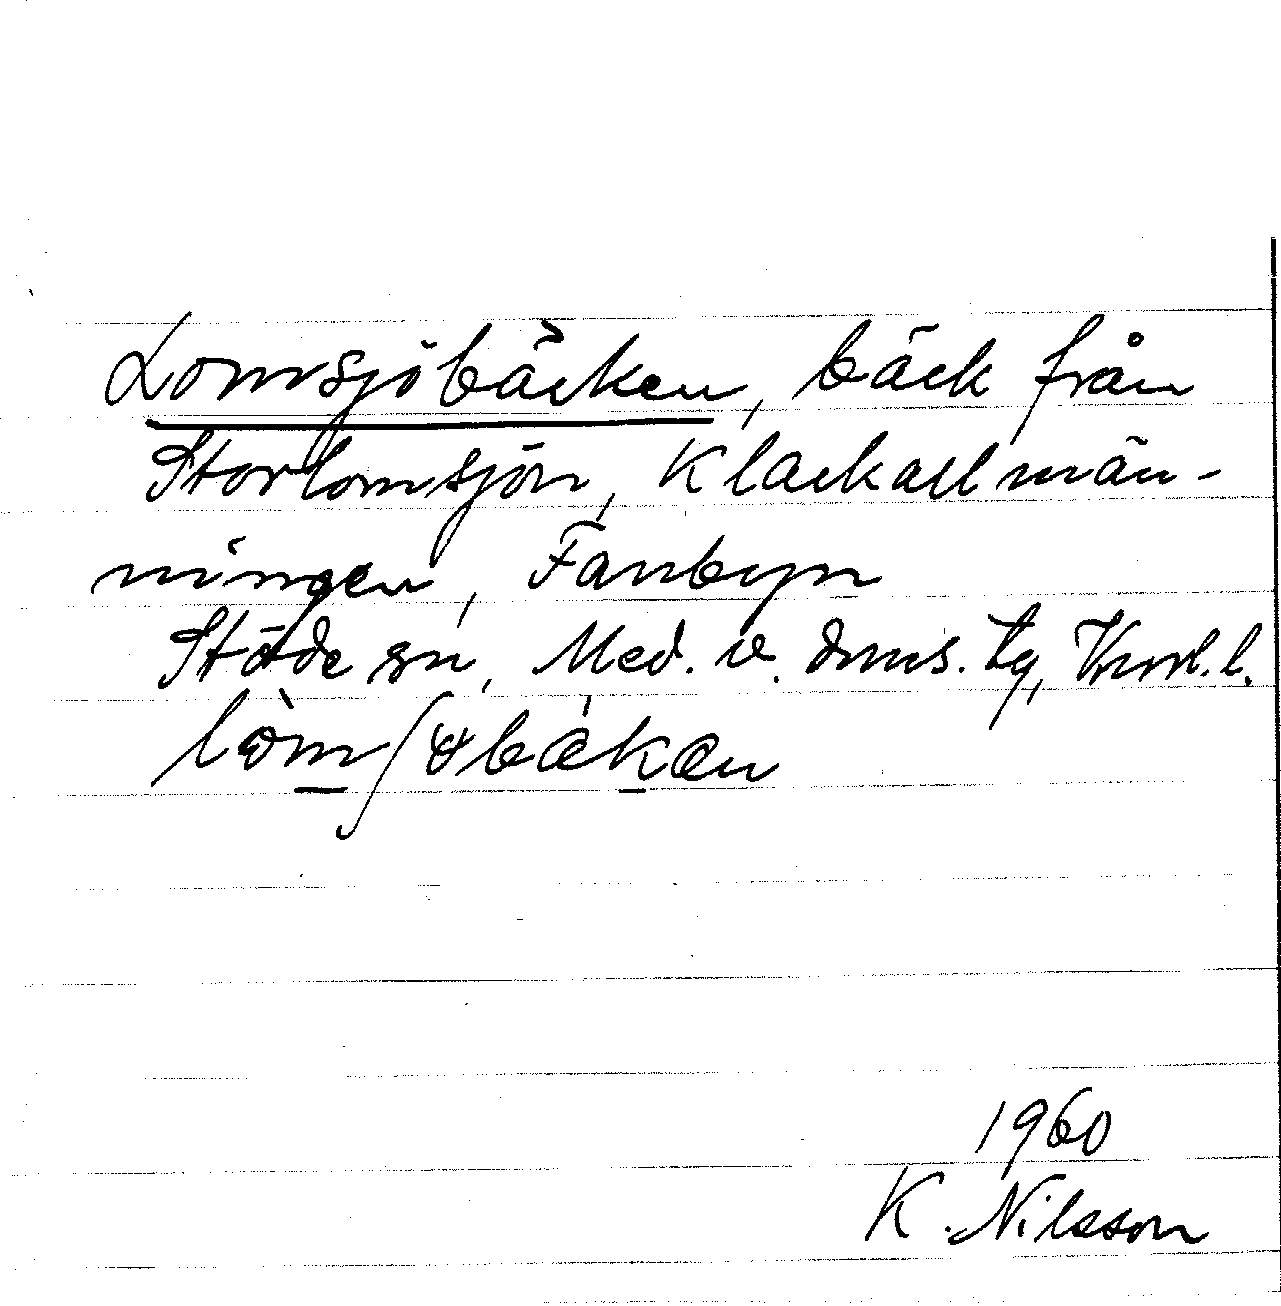 Lomsjöbäcken, bäck från
Storlomsjön, Klackallmän-
ningen, Fanbyn
Stöde sn, Med. v. dms. tg, Vnrl. l.
lòmʃøbækæn
1960
K. Nilsson